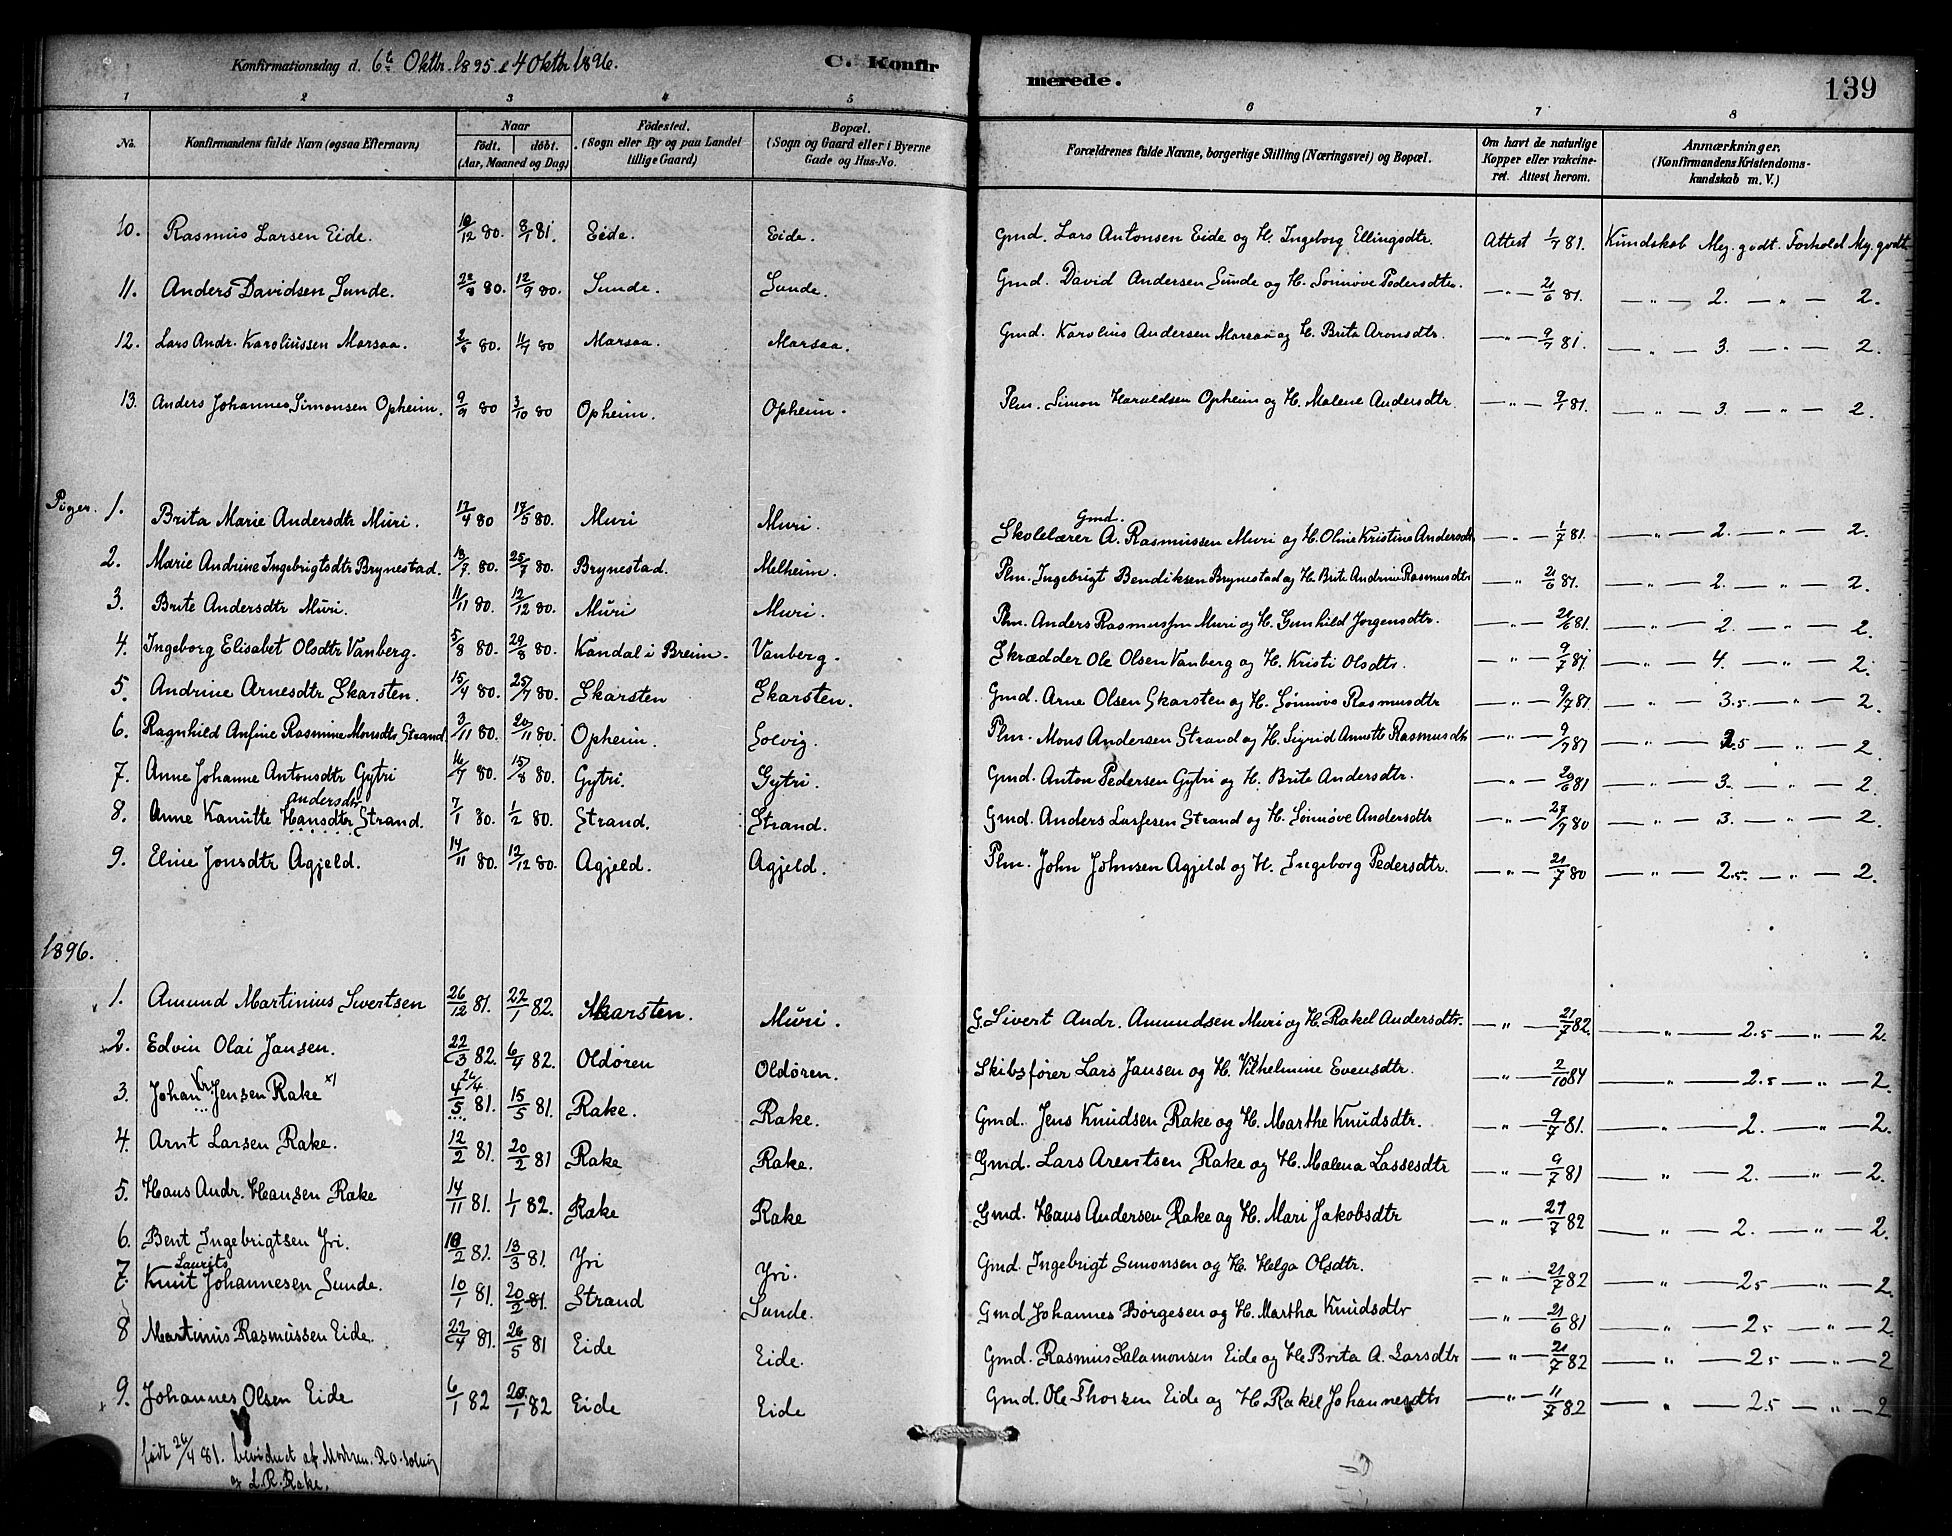 Konfirmationsdag d. 6te Oktbr. 1895 & 4 Oktbr 1896. C. Konfirmerede. 139
1 2 3 4 5 6 7 8
No. Konfirmandens fulde Navn (ogsaa Efternavn) Naar født. døbt. (Aar, Maaned og Dag) Födested. (Sogn eller By og paa Landet tillige Gaard) Bopæl. (Sogn og Gaard eller i Byerne Gade og Hus-No. Forældrenes fulde Navne, borgerlige Stilling (Næringsvei) og Bopæl. Om havt de naturlige Kopper eller vakcineret. Attest herom. Anmærkninger. (Konfirmandens Kristendomskundskab m. V.)
10. Rasmus Larsen Eide. 10/12 80. 8/1 81. Eide. Eide. Gmd. Lars Antonsen Eide og H. Ingeborg Ellingsdtr. Attest 1/7 81. Kundskab Mg. godt. Forhold Mg. godt
11. Anders Davidsen Sunde. 22/8 80. 12/9 80. Sunde. Sunde. Gmd. David Andersen Sunde og H. Sønnøve Pedersdtr. — " — 21/6 81. — " — 2. — " — 2.
12. Lars Andr. Karoliussen Marsaa. 80. 80 Marsaa. Marsaa. Gmd. Karolius Andersen Marsaa og H. Brita Aronsdtr. — " — 9/7 81. — " — 3. — " — 2.
13. Anders Johannes Simonsen Opheim. 9/9 80 3/10 80 Opheim. Opheim. Plm. Simon Haraldsen Opheim og H. Malene Andersdtr. — " — 81. — " — 3. — " — 2.
Piger. 1. Brita Marie Andersdtr Muri. 17/4 80 17/5 80. Muri Muri. Gmd. Skolelærer A. Rasmussen Muri og H. Oline Kristine Andersdtr — " — 1/7 81. — " — 2. — " — 2.
2. Marie Andrine Ingebrigtsdtr Brynestad. 13/7. 80. 25/7 80. Brynestad. Melheim. Plm. Ingebrigt Bendiksen Brynestad og H. Brite Andrine Rasmusdtr — " 21/6 81. — " — 2. — " — 2.
3. Brite Andersdtr Muri. 11/11 80. 12/12 80. Muri Muri. Plm. Anders Rasmussen Muri og H. Gunhild Jørgensdtr. — " — 21/6 81. — " — 2. — " — 2.
4. Ingeborg Elisabet Olsdtr Vanberg. 5/8 80. 29/8 80. Kandal i Breim. Vanberg. Skrædder Ole Olsen Vanberg og H. Kristi Olsdtr. — " — 9/7 81. — " — 4. — " — 2.
5. Andrine Arnesdtr Skarsten. 15/4 80. 25/4 80. Skarsten Skarsten. Gmd. Arne Olsen Skarsten og H. Sønnøve Rasmusdtr — " — 9/7 81. — " — 3.5. — " — 2.
6. Ragnhild Anfine Rasmine Monsdtr Strand 3/11 80. 20/11 80. Opheim. Solvig. Plm. Mons Andersen Strand og H. Sigrid Annette Rasmusdtr — " — 9/7 81 — " — 2.5 — " — 2.
7. Anne Johanne Antonsdtr Gytri 16/7 80. 15/8 80. Gytri. Gytri. Gmd. Anton Pedersen Gytri og H. Brite Andersdtr. — " — 81 — " — 3. — " — 2.
8. Anne Kanutte Hansdtr andersdtr Strand. 7/1 80. 1/2 80. Strand. Strand. Gmd. Anders Larsesen Strand og H. Sønnøve Andersdtr — " — 27/7 80 — " — 3. — " — 2.
9. Eline Jonsdtr Agjeld. 14/11 80. 12/12 80. Agjeld. Agjeld. Plm. John Johnsen Agjeld og H. Ingeborg Pedersdtr. — " — 21/7 80 — " — 2.5. — " — 2.
1896.
1. Amund Martinius Sivertsen 26/12 81. 22/1 82. Skarsten. Muri. G. Sivert Andr. Amundsen Muri og H. Rakel Andersdtr. — " — 21/7 82. — " — 2.5 — " — 2.
2. Edvin Olai Jansen. 22/3 82. 6/4 82. Oldøren Oldören. Skibsfører Lars Jansen og H. Vilhelmine Evensdtr. — " — 2/10 84 — " — 2.5 — " — 2.
3. Johan Jensen Rake x) 26/4 4/5 81. 15/5 81. Rake. Rake. Gmd. Jens Knudsen Rake og H. Marthe Knudsdtr. — " — 9/7 81. — " — 2. — " — 2.
4. Arnt Larsen Rake. 12/2 81. 20/2 81 Rake Rake. Gmd. Lars Arentsen Rake og H. Malena Lassesdtr — " — 9/7 81 — " — 2. — " — 2.
5. Hans Andr. Hansen Rake 14/11 81. 1/1 82. Rake Rake Gmd. Hans Andersen Rake og H. Mari Jakobsdtr — " — 27/7 82 — " — 2. — " — 2.
6. Bent Ingebrigtsen Yri. 18/2 81. 13/3 81. Yri Yri. Gmd. Ingebrigt Simonsen og H. Helga Olsdtr. — " — 21/7 82 — " — 25 — " — 2.
7. Knut Laurits Johannesen Sunde. 10/1 81. 20/2 81. Strand Sunde. Gmd Johannes Børgesen og H. Martha Knudsdtr — " — 21/6 81 — " — 25 — " — 2.
8 Martinus Rasmussen Eide. 22/4 81. 26/5 81 Eide Eide. Gmd. Rasmus Salamonsen Eide og H. Brita A. Larsdtr — " — 21/7 82 — " — 25 — " — 2
9. Johannes Olsen Eide 6/1 82 20/1 82 Eide Eide Gmd. Ole Thorsen Eide og H Rakel Johannesdtr — " — 11/7 82 — " — 2.5 — " — 2
født 26/4 81. bevidnet af Modren. R. O. Solvig
og L. R. Rake.